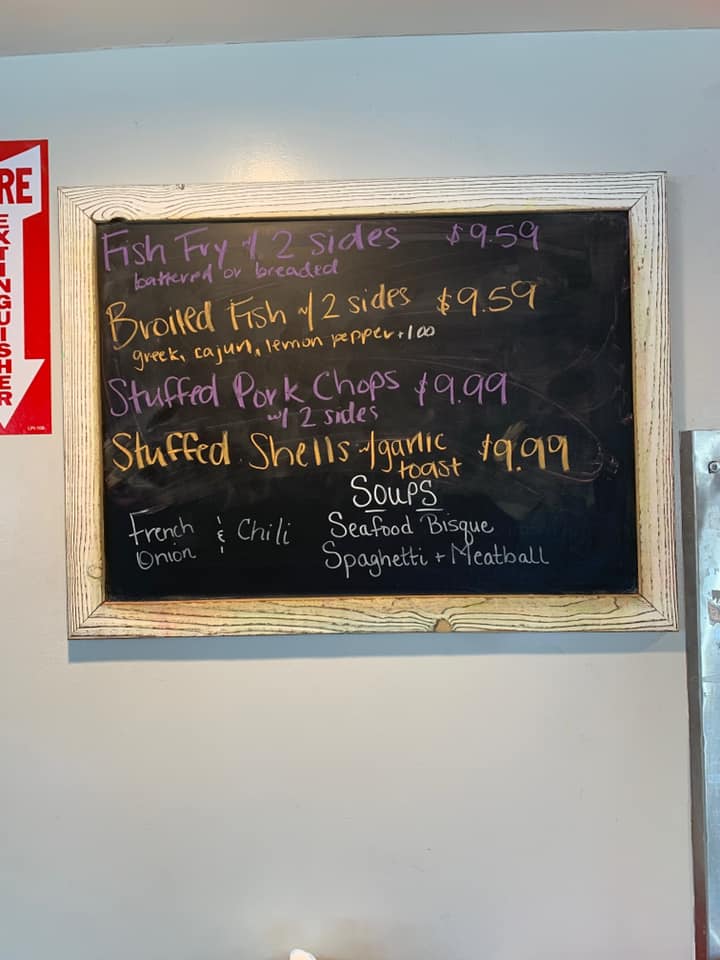 RE
EXTINGUISHER
Fish Fry w/ 2 sides $9.59
battered or breaded
Broiled Fish w/ 2 sides $9.59
greek, cajun, lemon pepper +1.00
Stuffed Pork Chops $9.99
w/ 2 sides
Stuffed Shells w/ garlic $9.99
toast
Soups
French & Chili
Onion
Seafood Bisque
Spaghetti + Meatball